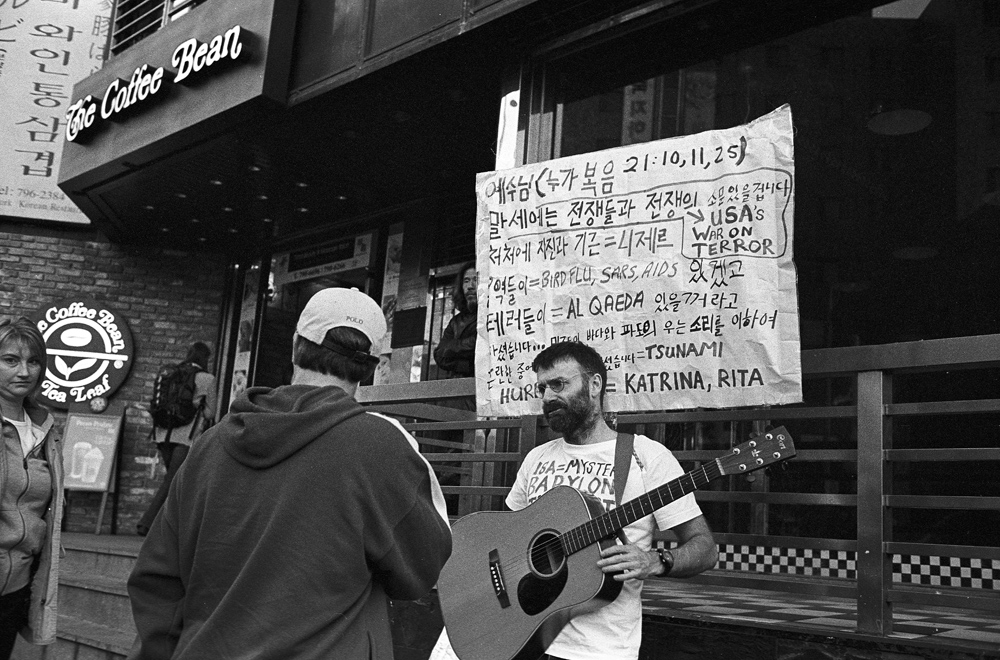 The Coffee Bean
와인통삼겹
Tel: 796-2384
Korean
The Coffee Bean
Tea Leaf
POLO
예수님(누가 복음 21:10,11,25)
말세에는 전쟁들과 전쟁의 소문있을겁니다
USA's
WAR ON
TERROR
처처에 지진과 기근=니제르
역들이=BIRD FLU, SARS, AIDS 있겠고
테러들이=AL QAEDA 있을거라고
바다와 파도의 우는 소리를 이하여
=TSUNAMI
= KATRINA, RITA
USA=MYSTERY
BABYLON